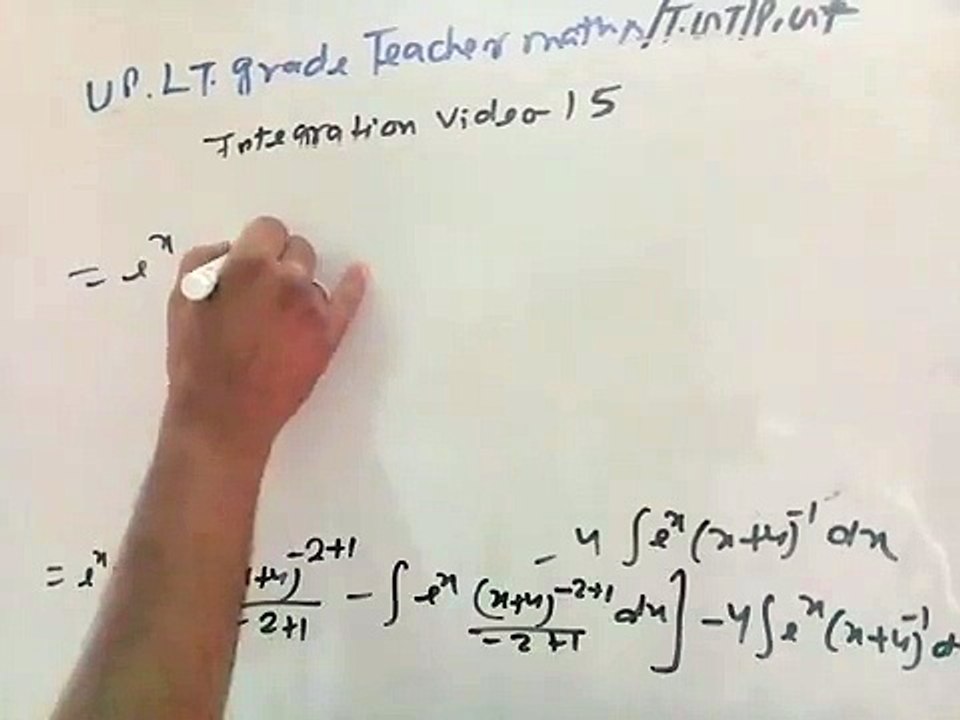 U P. L T. grade Teacher maths/T.GT/P.GT
Integration video 15
= e^x
- 4 ∫e^x (x+4)^-1 dx
= e^x +4)^-2+1 / -2+1 - ∫ e^x (x+4)^-2+1 / -2+1 dx] - 4∫e^x (x+4)^-1 d